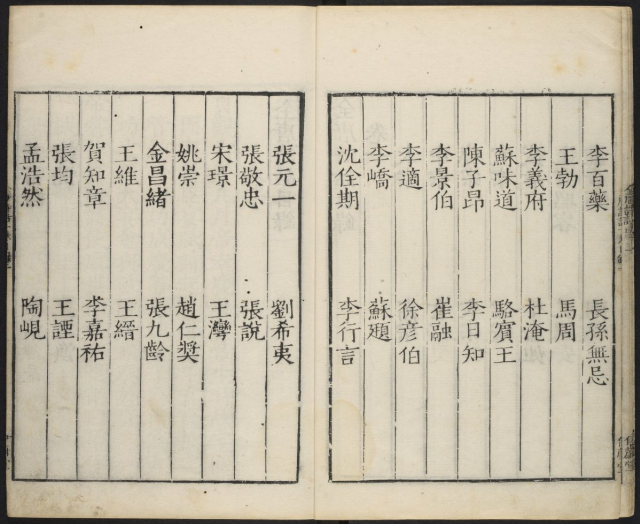 李百藥 長孫無忌
王勃 馬周
李義府 杜淹
蘇味道 駱賓王
陳子昂 李日知
李景伯 崔融
李適 徐彦伯
李嶠 蘇頲
沈佺期 李行言
張元一 劉希夷
張敬忠 張說
宋璟 王灣
姚崇 趙仁獎
金昌緒 張九齡
王維 王縉
賀知章 李嘉祐
張均 王諲
孟浩然 陶峴